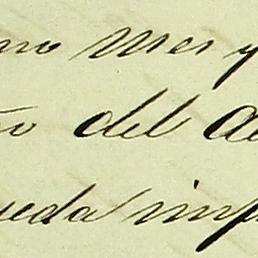 mo mes y
to del a
ueda imp